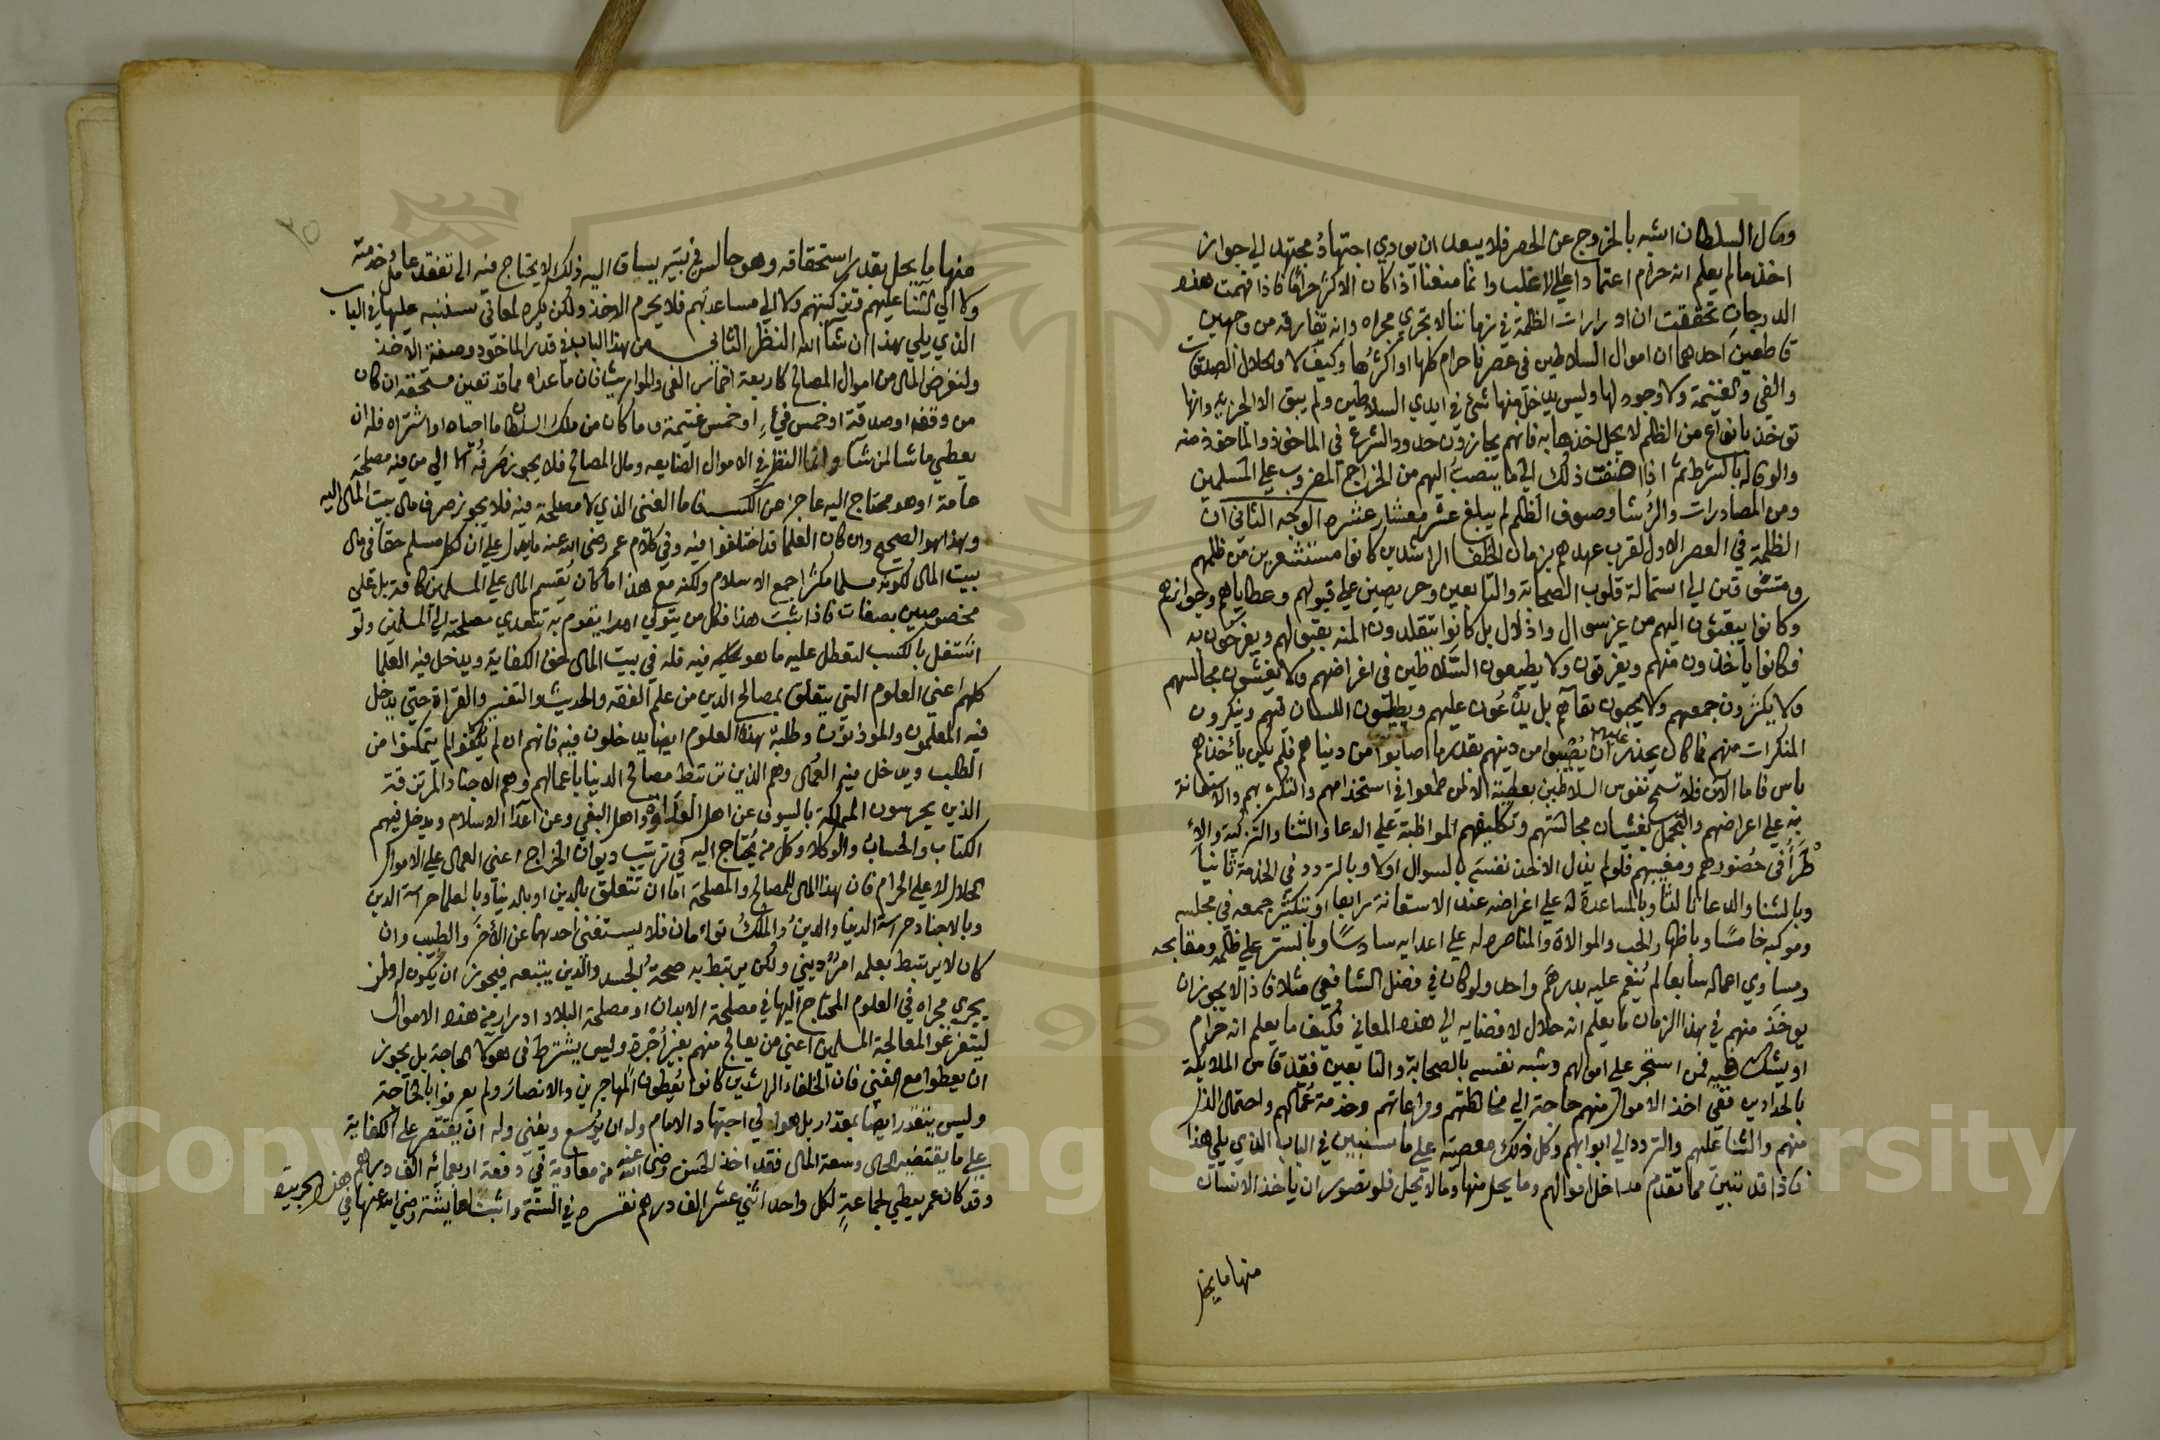 ومال السلطان اشبه بالخروج عن الحصر فلا يبعد ان يودي اجتهادُ مجتهد الي جواز
اخذ ما لم يعلم انه حرام اعتمادا علي الاغلب وانما منعنا اذا كان الاكثر حراما فاذا فهمت هذه
الدرجات تحققت ان ادرارات الظلمة في زماننا لا تجري مجراه وانه يفارقه من وجهين
قاطعين احدهما ان اموال السلاطين في عصرنا حرام كلها او اكثرها وكيف لا والحلال الصدقات
والفي والغنيمة ولا وجود لها وليس يدخل منها شئ في ايدي السلاطين ولم يبق الا الجزيه وانها
توخذ بانواع من الظلم لا يحل اخذها به فانهم يجاوزون حدود الشرع في الماخوذ والماخوذ منه
والوفا له بالشرط ثم اذا اضفت ذلك الي ما ينصب اليهم من الخراج المضروب علي المسلمين
ومن المصادرات والرشا وصنوف الظلم لم يبلغ عشر معشار عشره الوجه الثاني ان
الظلمة في العصر الاول لقرب عهدهم بزمان الخلفا الراشدين كانوا مستشعرين من ظلمهم
ومتشوقين الي استمالة قلوب الصحابة والتابعين وحريصين علي قبولهم وعطاياهم وجوايزهم
وكانوا يبعثون اليهم من غير سوال واذلال بل كانوا يتقلدون المنه بقبولهم ويفرحون به
فكانوا ياخذون منهم ويفرقون ولا يطيعون السلاطين في اغراضهم ولا يغشون مجالسهم
ولا يكثرون جمعهم ولا يحبون بقاهم بل يدعون عليهم ويطلقون اللسان فيهم وينكرون
المنكرات منهم فما كان يحذر عليهم ان يصيبوا من دينهم بقدر ما اصابوا من دنياهم فلم يكن ياخذهم
باس فاما الان فلا تسمح نفوس السلاطين بعطية الا لمن طمعوا في استخدامهم والتكثر بهم والاستعانة
به علي اغراضهم والتجمل بغشيان مجالستهم وتكليفهم المواظبة علي الدعا والثنا والتزكية والا
طرأ في حضورهم ومغيبهم فلو لم يذل الاخذ نفسه بالسوال اولا وبالتردد في الخدمة ثانيا
وبالثنا والدعا ثالثا وبالمساعدة له علي اغراضه عند الاستعانة رابعا او بتكثير جمعه في مجلسه
وموكبه خامسا وباظهار الحب والموالاة والمناصره له علي اعدايه سادسا وبالستر علي ظلمه ومقابحه
ومساوي اعماله سابعا لم يُنعم عليه بدرهم واحد ولو كان في فضل الشافعي مثلا فاذا لا يجوز ان
يوخذ منهم في هذا الزمان ما يعلم انه حلال لافضايه الي هذه المعاني فكيف ما يعلم انه حرام
او يشك فيه فمن استجرا علي اموالهم وشبه نفسه بالصحابة والتابعين فقد قاس الملايكة
بالحدادين ففي اخذ الاموال منهم حاجة الي مخالطتهم ومراعاتهم وخدمة عمالهم واحتمال الذل
منهم والثنا عليهم والتردد الي ابوابهم وكل ذلك معصية علي ما سنبين في الباب الذي يلي هذا
فاذا قد تبين مما تقدم مداخل اموالهم وما يحل منها وما لا يحل فلو تصور ان ياخذ الانسان
منها ما يحل
منها ما يحل بقدر استحقاقه وهو جالس في بيته يساق اليه ذلك لا يحتاج فيه الي تفقد عامل وخدمته
ولا الي الثنا عليهم وتزكيتهم ولا الي مساعدتهم فلا يحرم الاخذ ولكن يكره لمعاني سننبه عليها في الباب
الذي يلي هذا ان شا الله النظر الثاني من هذا الباب في قدر الماخوذ وصفة الاخذ
ولنفرض المال من اموال المصالح كاربعة اخماس الفي والمواريث فان ما عداه مما قد تعين مستحقه ان كان
من وقف او صدقة او خمس فيء او خمس غنيمة وما كان من ملك السلطان مما احياه او اشتراه فله ان
يعطي ما شا لمن شا وانما النظر في الاموال الضايعه ومال المصالح فلا يجوز صرفه الا الي من فيه مصلحة
عامة او هو محتاج اليه عاجز عن الكسب فاما الغني الذي لا مصلحة فيه فلا يجوز صرف مال بيت المال اليه
وهذا هو الصحيح وان كان العلما قد اختلفوا فيه وفي كلام عمر رضي الله عنه ما يدل علي ان لكل مسلم حقا في مال
بيت المال لكونه مسلما مكثرا جمع الاسلام ولكنه مع هذا ما كان يقسم المال علي المسلمين كافة بل علي
مخصوصين بصفات فاذا ثبت هذا فكل من يتولي امرا يقوم به تتعدي مصلحته الي المسلمين ولو
اشتغل بالكسب لتعطل عليه ما هو فيه فله في بيت المال حق الكفاية ويدخل فيه العلما
كلهم اعني العلوم التي تتعلق بمصالح الدين من علم الفقه والحديث والتفسير والقراة حتي يدخل
فيه المعلمون والموذنون وطلبة هذه العلوم ايضا يدخلون فيه فانهم ان لم يكفوا لم يتمكنوا من
الطلب ويدخل فيه العمال وهم الذين ترتبط مصالح الدنيا باعمالهم وهم الاجناد المرتزقة
الذين يحرسون المملكة بالسيوف عن اهل العداوة واهل البغي وعن اعدا الاسلام ويدخل فيهم
الكتاب والحساب والوكلا وكل من يُحتاج اليه في ترتيب ديوان الخراج اعني العمال علي الاموال
الحلال لا علي الحرام فان هذا المال للمصالح والمصلحة اما ان تتعلق بالدين او بالدنيا وبالعلما حراسة الدين
وبالاجناد حراسة الدنيا والدينُ والملكُ توامان فلا يستغني احدهما عن الاخر والطبيب وان
كان لا يرتبط بعلمه امر ديني ولكن يرتبط به صحة الجسد والدين يتبعه فيجوز ان يكون له ولمن
يجري مجراه في العلوم المحتاج اليها في مصلحة الابدان او مصلحة البلاد ادرار من هذه الاموال
ليتفرغوا لمعالجة المسلمين اعني من يعالج منهم بغير اجرة وليس يشترط في هولا الحاجة بل يجوز
ان يعطوا مع الغني فان الخلفاء الراشدين كانوا يُعطون المهاجرين والانصار ولم يعرفوا بالحاجة
وليس يتقدر ايضا بمقدار بل هو الي اجتهاد الامام وله ان يوسع ويغني وله ان يقتصر علي الكفاية
علي ما يقتضيه الحال وسعة المال فقد اخذ الحسن رضي الله عنه من معاوية في دفعة اربعماية الف درهم
وقد كان عمر يعطي لجماعةٍ لكل واحد اثني عشر الف درهم نقرة في السنة واثبتت عايشة رضي الله عنها في هذه الجريدة